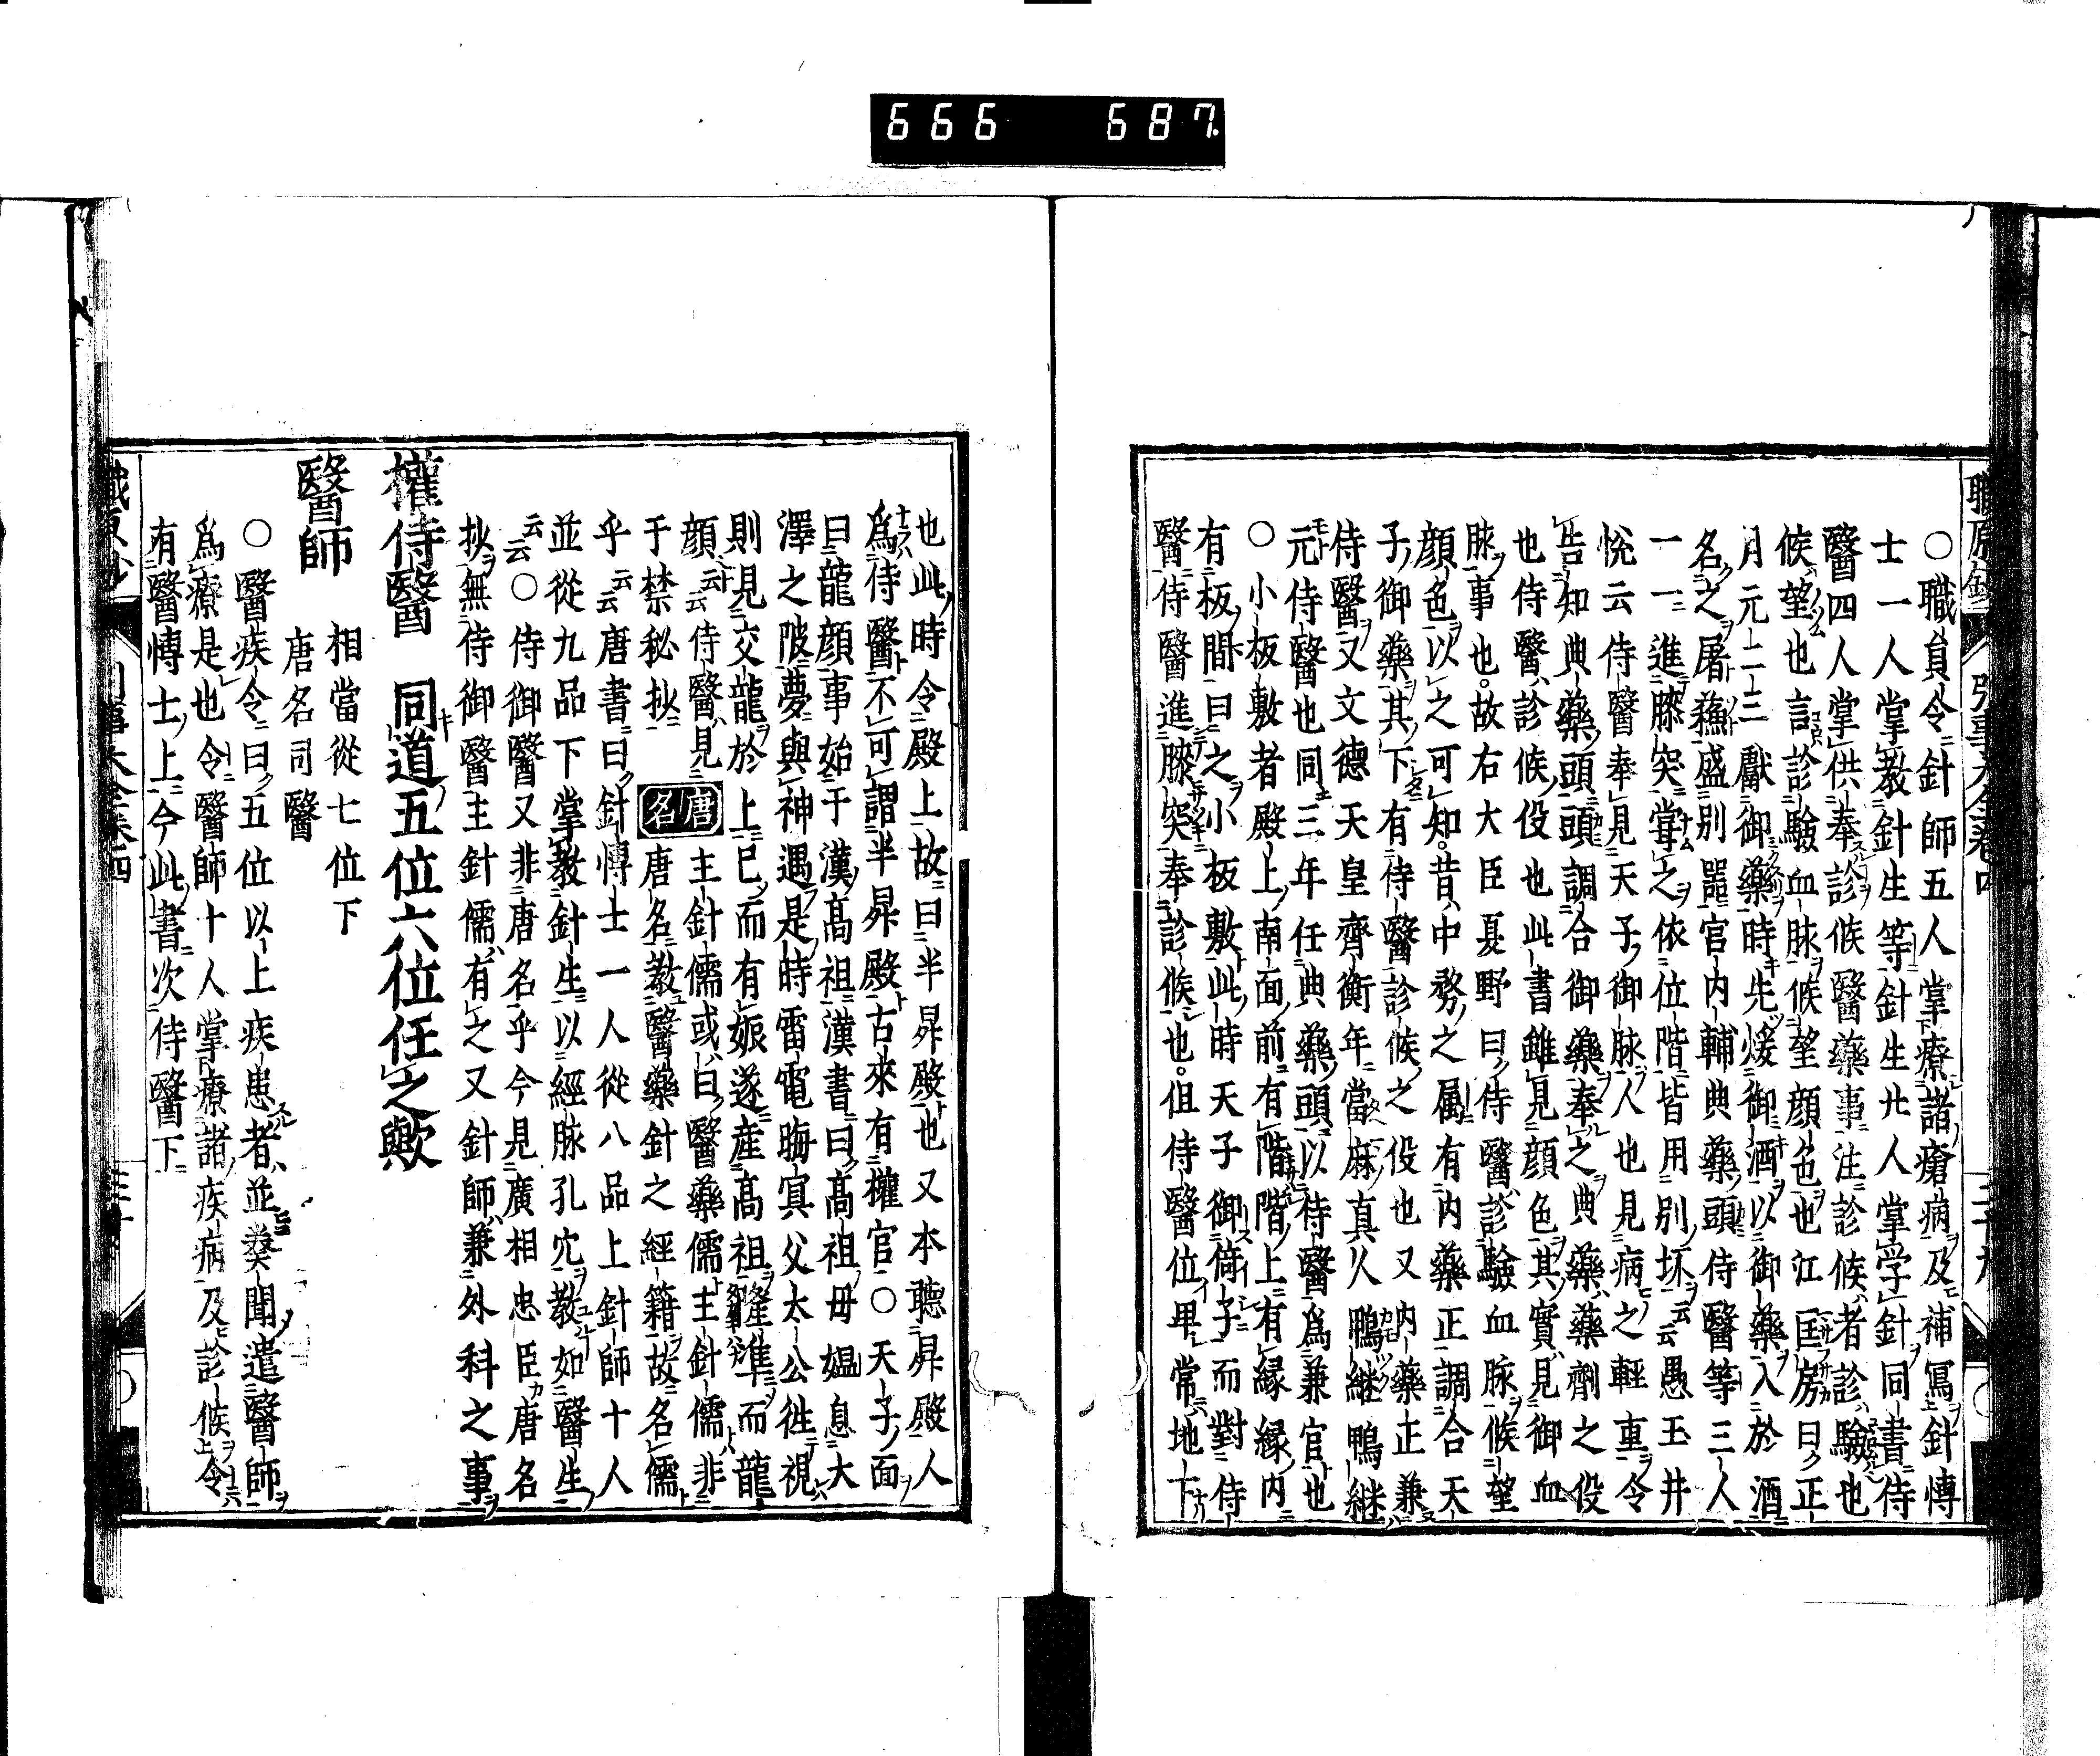 666 687
〇職員令針師五人掌療諸瘡病及補寫針博
士一人掌教針生等針生廿人掌学針同書侍
醫四人掌供奉診候醫藥事注診候者診驗也
候望也言診驗血脉候望顔色也江匡房曰正
月元二三獻御藥時先煖御酒以御藥入於酒
名之屠蘓盛別噐官内輔典藥頭侍醫等三人
一一進膝突甞之依位階皆用別坏云云愚玉井
恱云侍醫奉見天子御脉人也見病之輕重令
告知典藥頭頭調合御藥奉之典藥藥劑之役
也侍醫診候役也此書雖見顔色其實見御血
脉事也故右大臣夏野曰侍醫診驗血脉候望
顔色以之可知昔中務之屬有内藥正調合天
子御藥其下有侍醫診候之役也又内藥正兼
侍醫又文德天皇齊衡年當麻真人鴨継鴨継
元侍醫也同三年任典藥頭以侍醫爲兼官也
〇小板敷者殿上南面前有階階上有縁縁内
有板間曰之小板敷此時天子御倚子而對侍
醫侍醫進膝突奉診候也但侍醫位卑常地下
也此時令殿上故曰半昇殿也又本聽昇殿人
爲侍醫不可謂半昇殿古來有權官〇天子面
曰龍顔事始于漢髙祖漢書曰髙祖毋媼息大
澤之陂夢與神遇是時雷電晦冥父太公徃視
則見交龍於上已而有娠遂産髙祖隆準而龍
顔云云侍醫見唐名主針儒或曰醫藥儒主針儒非
于禁秘抄唐名教醫藥針之經籍故名儒
乎云云唐書曰針博士一人從八品上針師十人
並從九品下掌教針生以經脉孔穴教如醫生
云云〇侍御醫又非唐名乎今見廣相忠臣唐名
抄無侍御醫主針儒有之又針師兼外科之事
權侍醫 同道五位六位任之歟
醫師 相當從七位下
唐名司醫
〇醫疾令曰五位以上疾患者並奏聞遣醫師
爲療是也令醫師十人掌療諸疾病及診候令
有醫博士上今此書次侍醫下